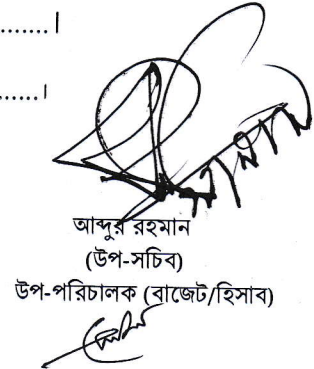 .......।
......।
আব্দুর রহমান
(উপ-সচিব)
উপ-পরিচালক (বাজেট/হিসাব)